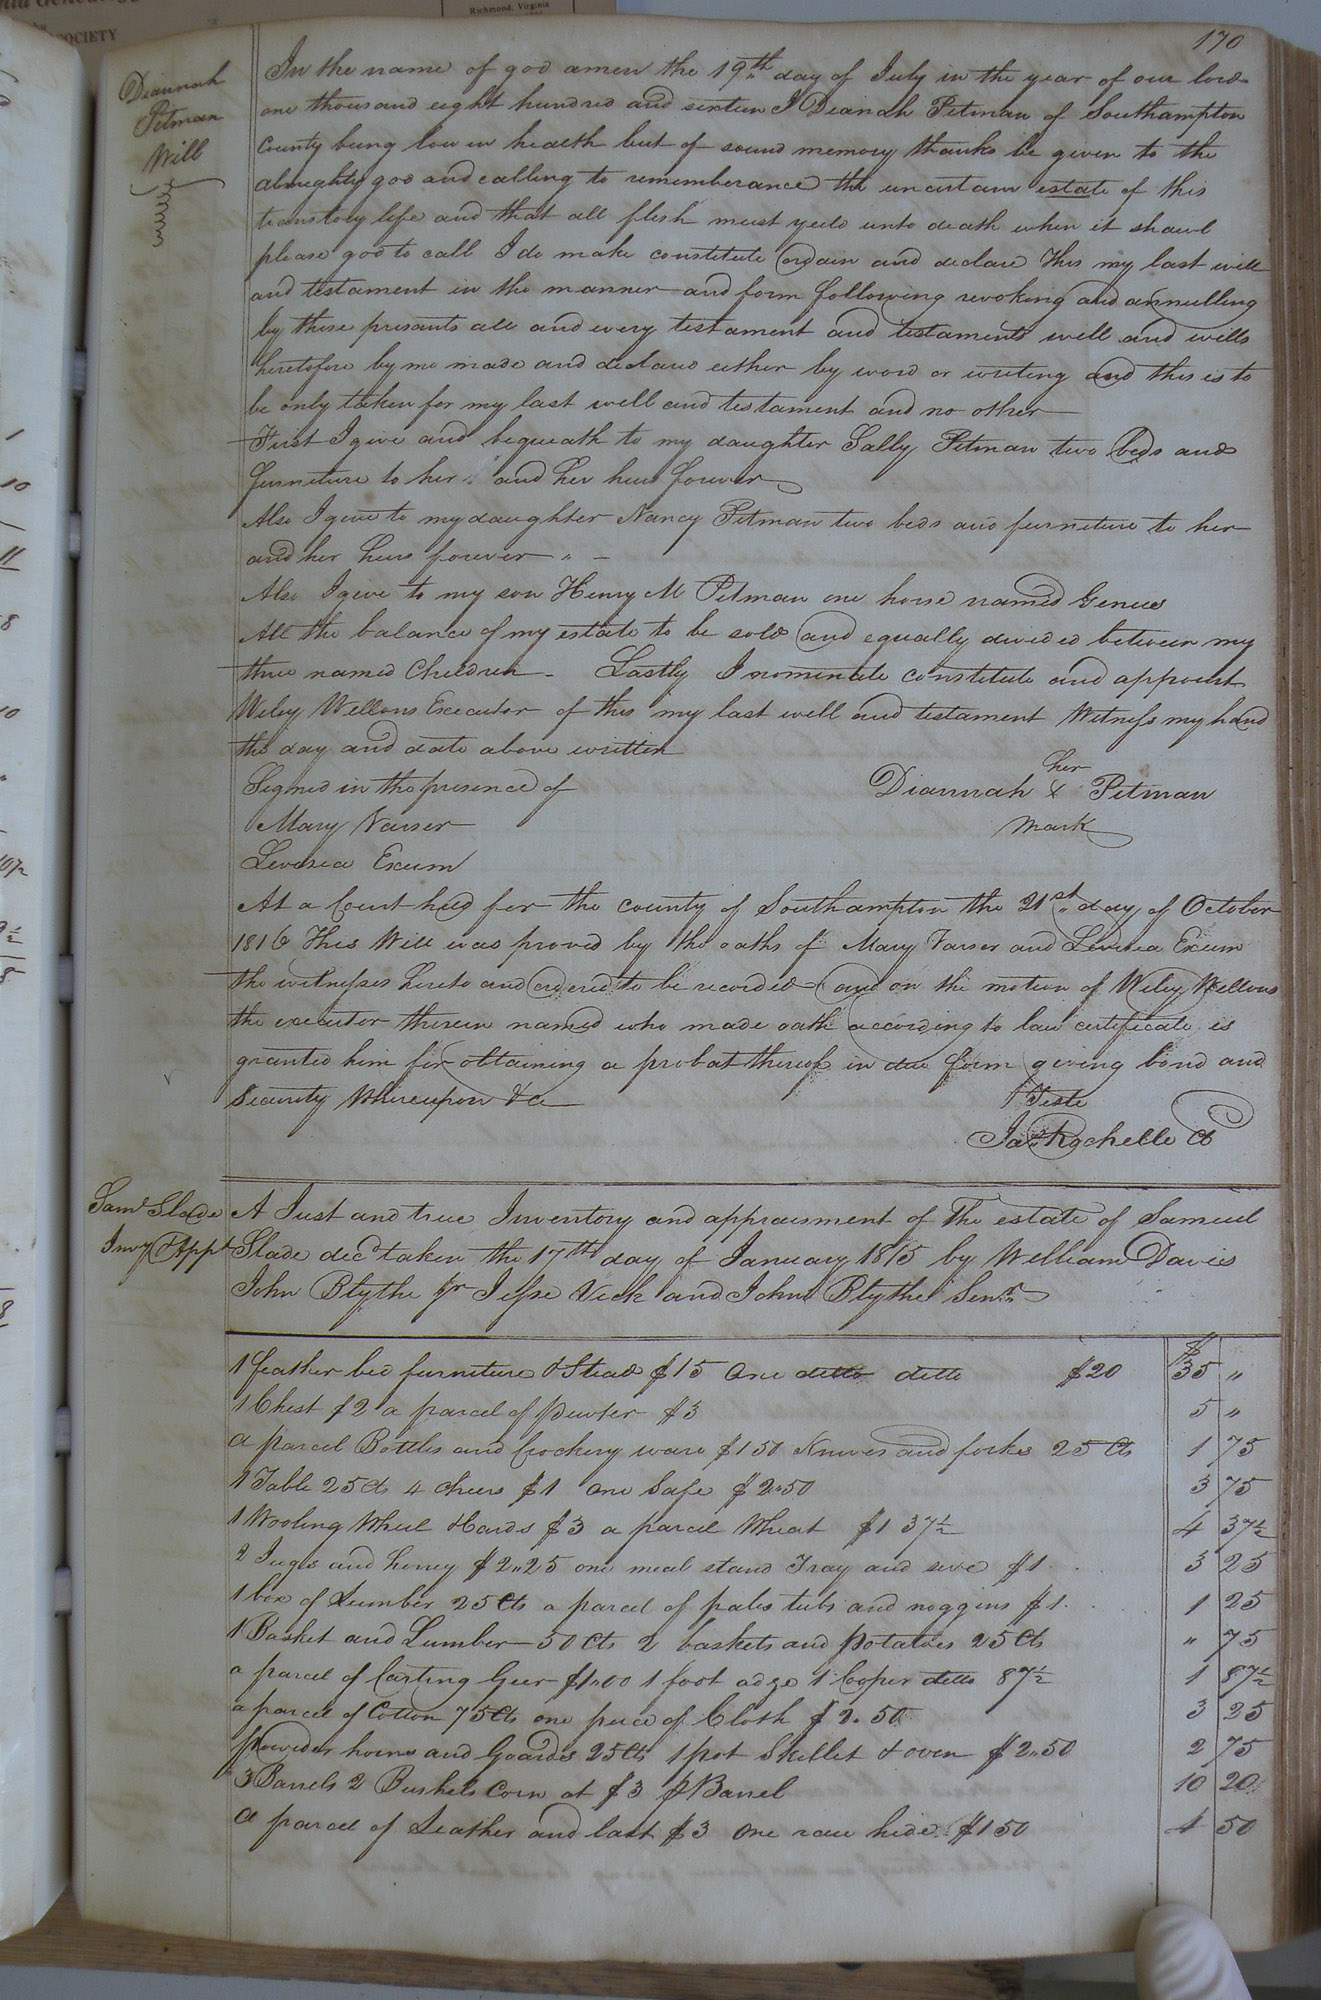 Richmond, Virginia
SOCIETY
170
Diannah
Pitman
Will
In the name of god amen the 19th day of July in the year of our lord
one thousand eight hundred and sixteen I Dianah Pitman of Southampton
County being low in health but of sound memory thanks be given to the
almighty god and calling to rememberance the uncertain estate of this
transitory life and that all flesh must yeild unto death when it shawl
please god to call I do make constitute ordain and declare This my last will
and testament in the manner and form following revoking and annulling
by these presants all and every testament and testaments will and wills
heretofore by me made and declared either by word or writing and this is to
be only taken for my last will and testament and no other
First I give and bequeath to my daughter Sally Pitman two beds and
furniture to her and her heirs forever
Also I give to my daughter Nancy Pitman two beds and furniture to her
and her heirs forever
Also I give to my son Henry M Pitman one horse named Genius
All the balance of my estate to be sold and equally divided between my
three named Children - Lastly I nominate constitute and appoint
Wiley Wellons Executor of this my last will and testament Witness my hand
the day and date above written
Signed in the presence of
her
Diannah X Pitman
mark
Mary
Exum
At a Court held for the county of Southampton the 21st day of October
1816 This Will was proved by the oaths of Mary and Exum
the witnesses hereto and ordered to be recorded and on the motion of Wiley Wellons
the executor therein named who made oath according to law certificate is
granted him for obtaining a probat thereof in due form giving bond and
Security Whereupon &c
Teste
Jas Rochelle C
Saml Slade
Invy & Appt
A Just and true Inventory and appraisment of The estate of Samuel
Slade decd taken the 17th day of January 1815 by William Davis
John Blythe Jr Jesse Vick and John Blythe Senr
$
1 feather bed furniture & Stead $15 One ditto ditto $20 35 "
1 Chest $2 a parcel of pewter $3 5 "
a parcel Bottles and Crockery ware $1 50 Knives and forks 25 Cts 1 75
1 Table 25 Cts 4 cheirs $1 one Safe $2.50 3 75
1 Wooling Wheel & Cards $3 a parcel Wheat $1 37½ 4 37½
2 Jugs and honey $2.25 one meal stand Tray and sive $1 3 25
1 box of Lumber 25 Cts a parcel of pales tubs and noggins $1 1 25
1 Basket and Lumber 50 Cts 2 baskets and Potatoes 25 Cts " 75
a parcel of Carting Geer $1.00 1 foot adze 1 Cooper ditto 87½ 1 87½
a parcel of Cotton 75 Cts one peice of Cloth $2.50 3 25
powder horns and Goardes 25 Cts 1 pot Skillet & oven $2.50 2 75
3 Barrels 2 Bushels Corn at $3 p Barrel 10 20
a parcel of Leather and last $3 One raw hide $1 50 4 50